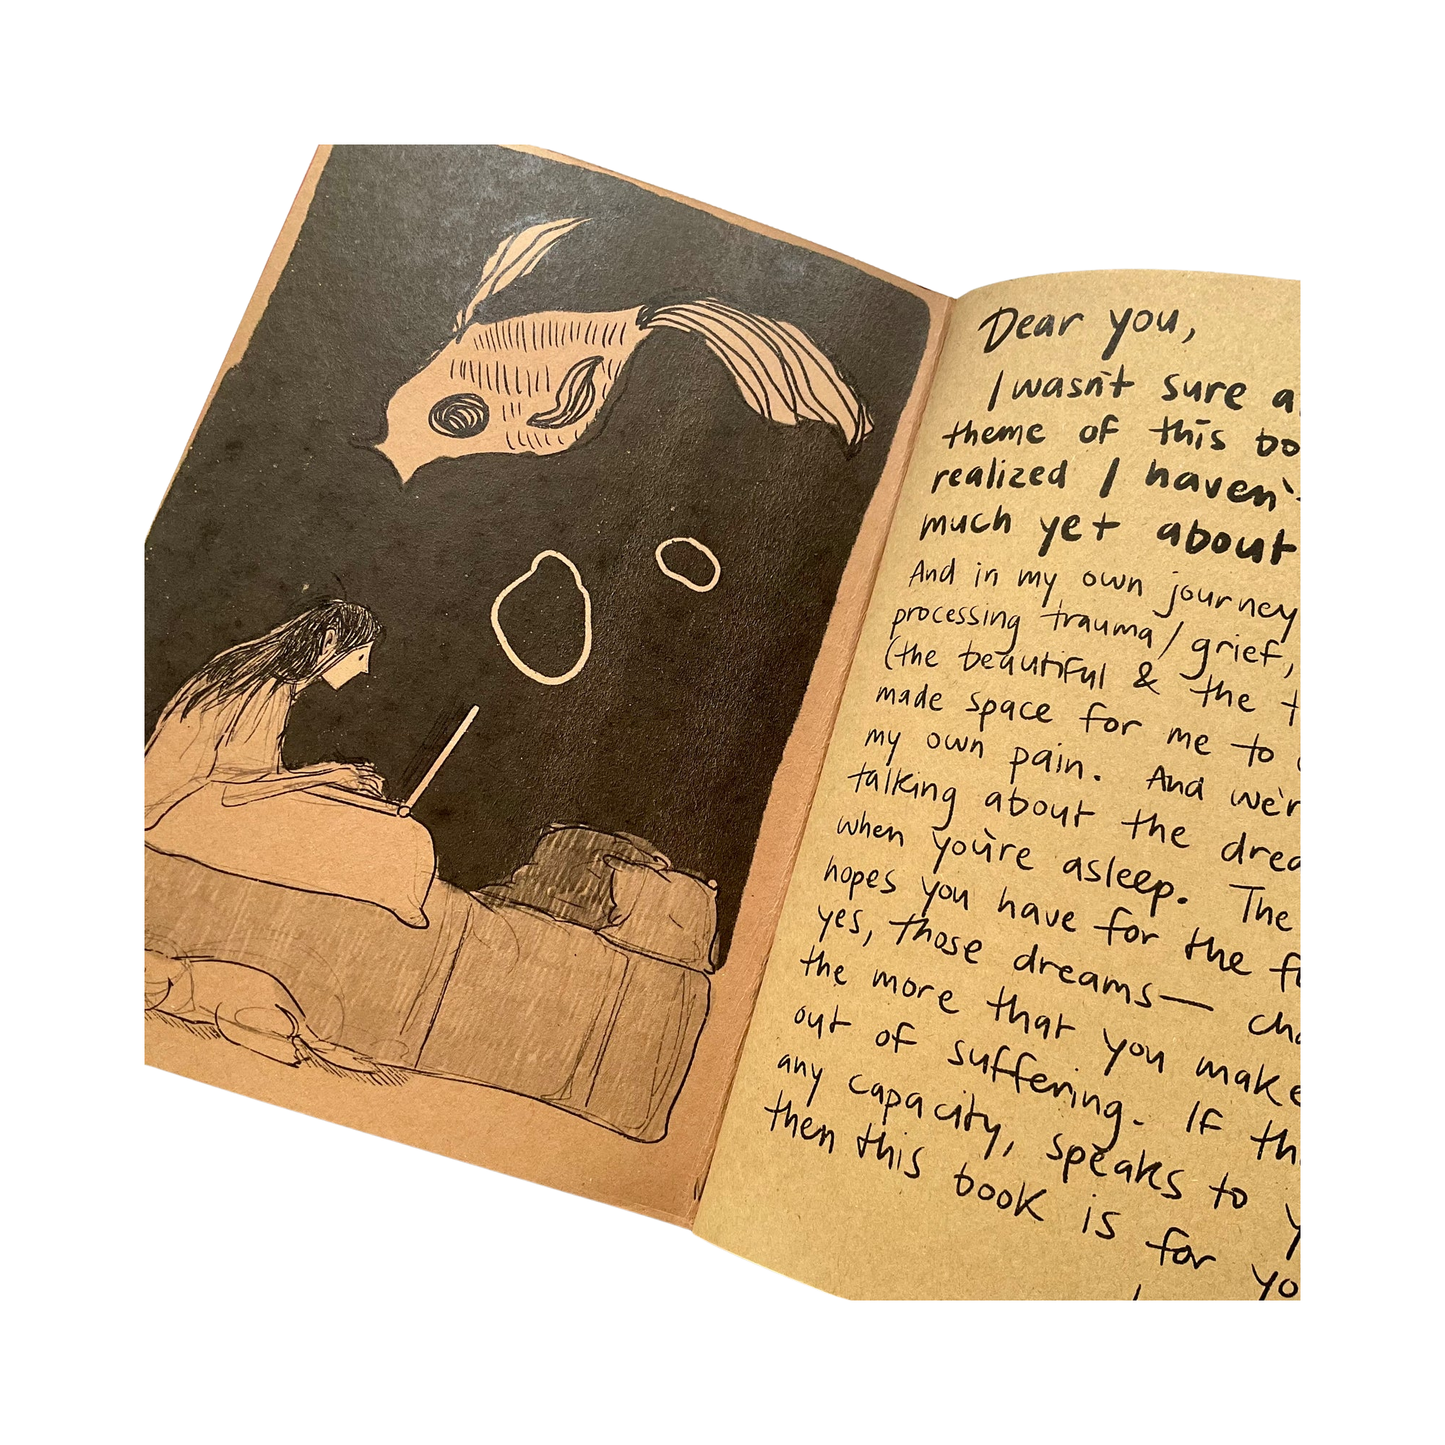 Dear you,
I wasn't sure a
theme of this bo
realized I haven't
much yet about
And in my own journey
processing trauma/grief,
(the beautiful & the t
made space for me to
my own pain. And we'r
talking about the drea
when you're asleep. The
hopes you have for the fu
yes, those dreams— cha
the more that you make
out of suffering. If thi
any capacity, speaks to y
then this book is for yo